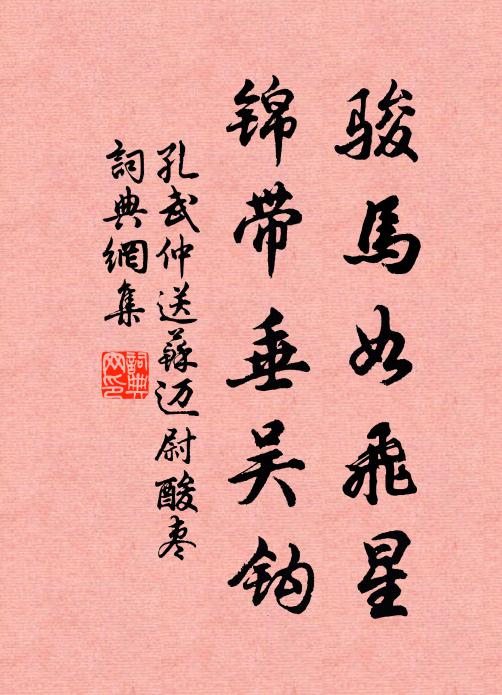 骏馬如飛星
锦带垂吴钩
孔武仲送蘇迈尉酸枣
詞典網集
詞典
网印